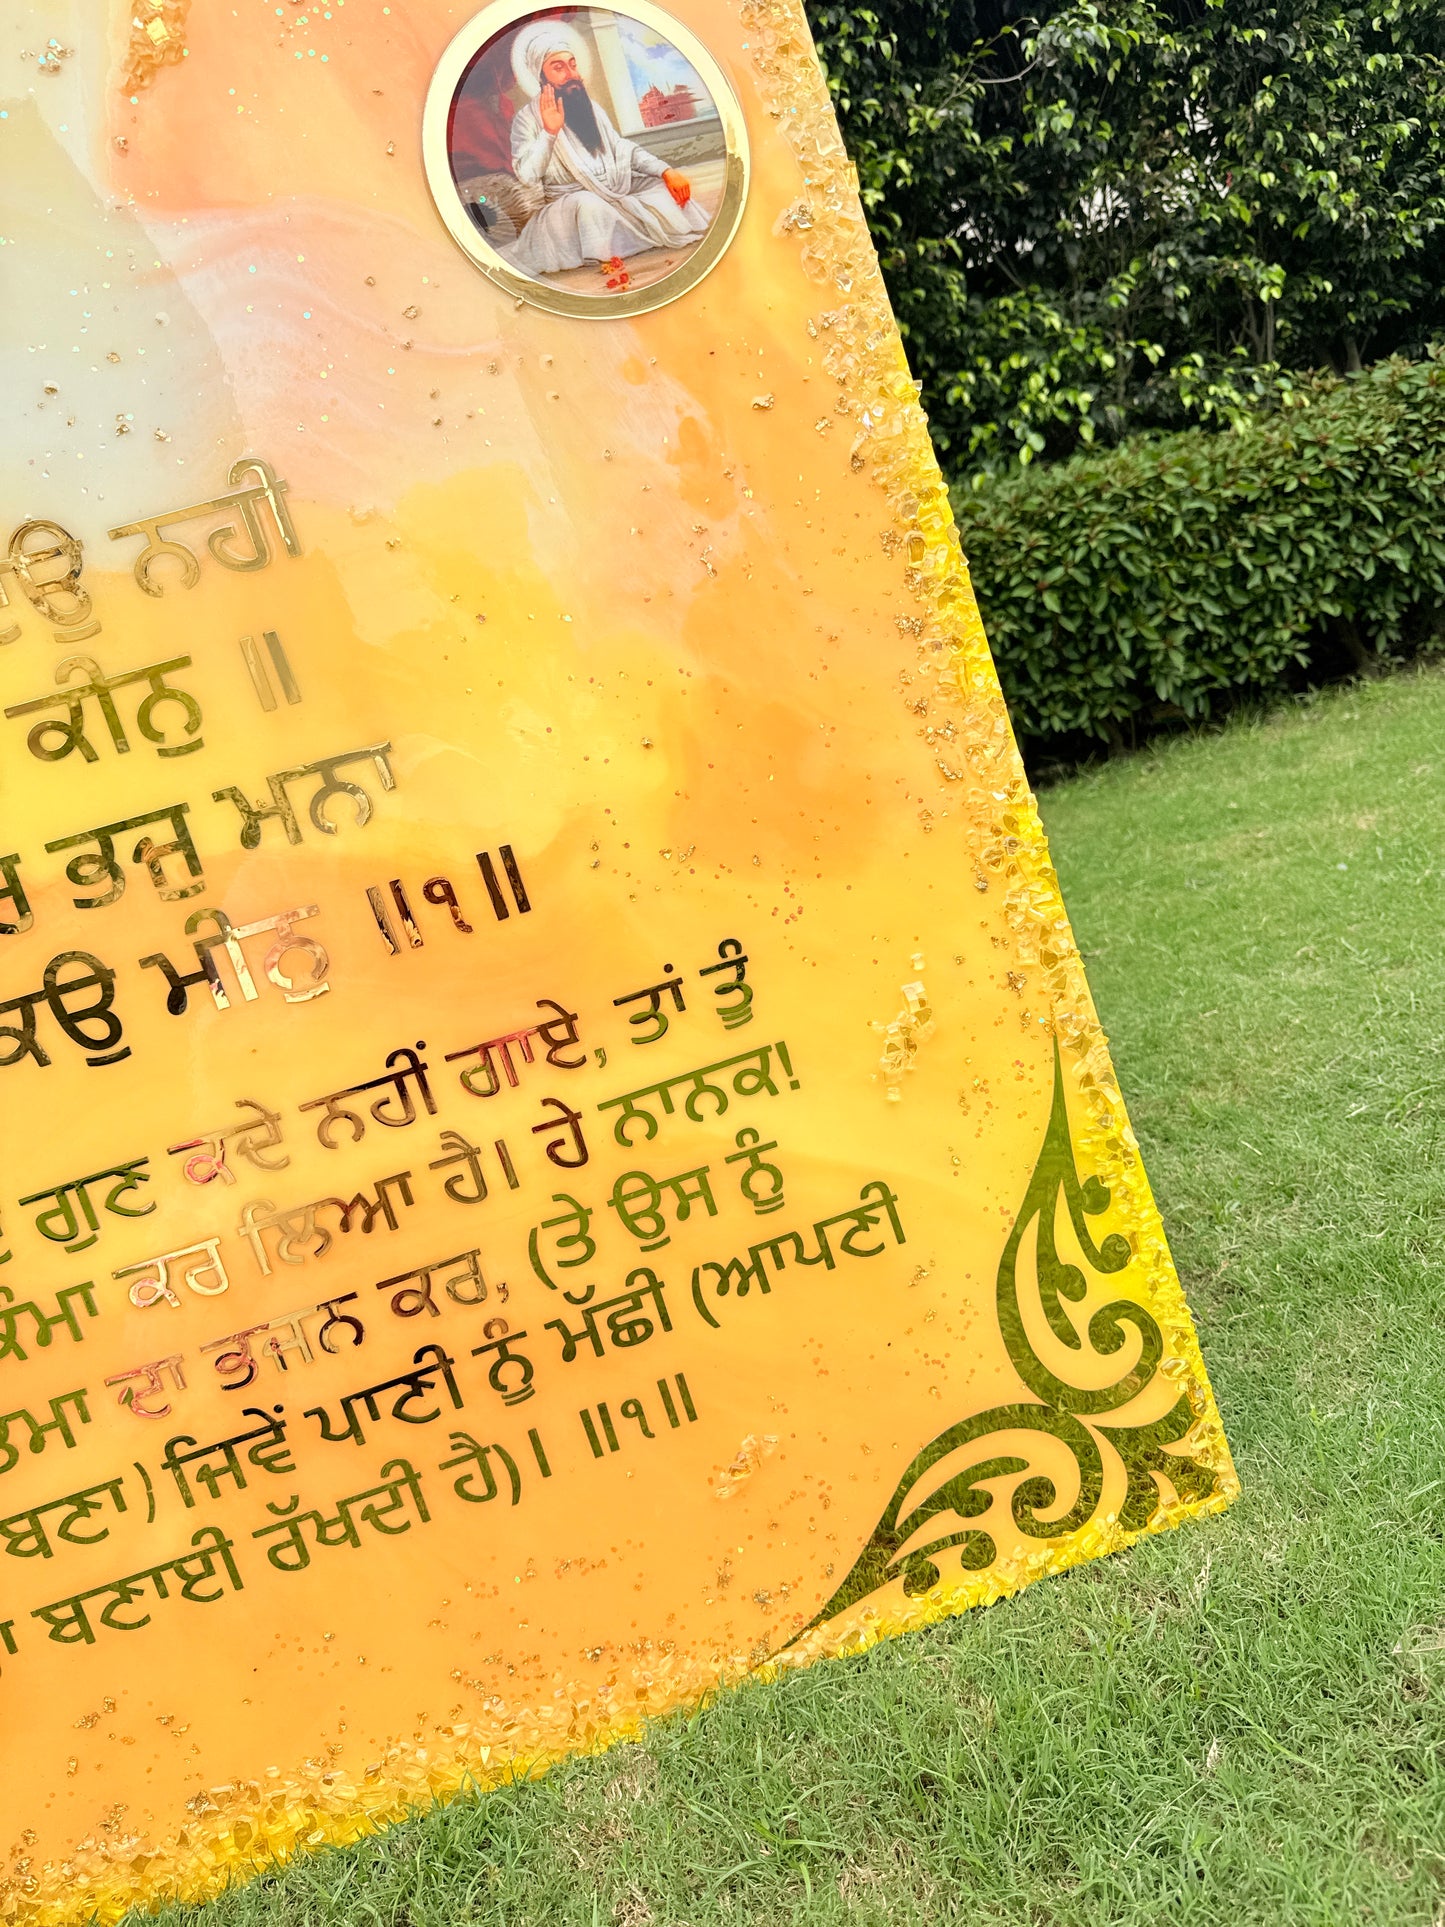 ਨਹੀ
ਕੀਨੁ ॥
ਭਜੁ ਮਨਾ
ਕਉ ਮੀਨੁ ॥੧॥
ਗੁਣ ਕਦੇ ਨਹੀਂ ਗਾਏ, ਤਾਂ ਤੂੰ
ਕਰ ਲਿਆ ਹੈ। ਹੇ ਨਾਨਕ!
ਦਾ ਭਜਨ ਕਰ, (ਤੇ ਉਸ ਨੂੰ
ਬਣਾ) ਜਿਵੇਂ ਪਾਣੀ ਨੂੰ ਮੱਛੀ (ਆਪਣੀ
ਬਣਾਈ ਰੱਖਦੀ ਹੈ)। ॥੧॥